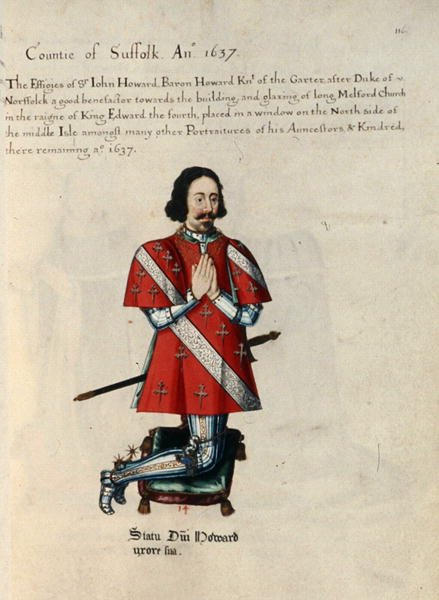 116.
Countie of Suffolk. Ano. 1637.
The Effigies of Sr. Iohn Howard, Baron Howard Knt. of the Garter, after Duke of
Norffolck a good benefactor towards the building, and glazing of long Melford Church
in the raigne of King Edward the fourth, placed in a window on the North side of
the middle Isle amongst many other Portraitures of his Auncestors & Kindred,
there remaining ao. 1637.
14
Statu Dni Howard
uxore sua.